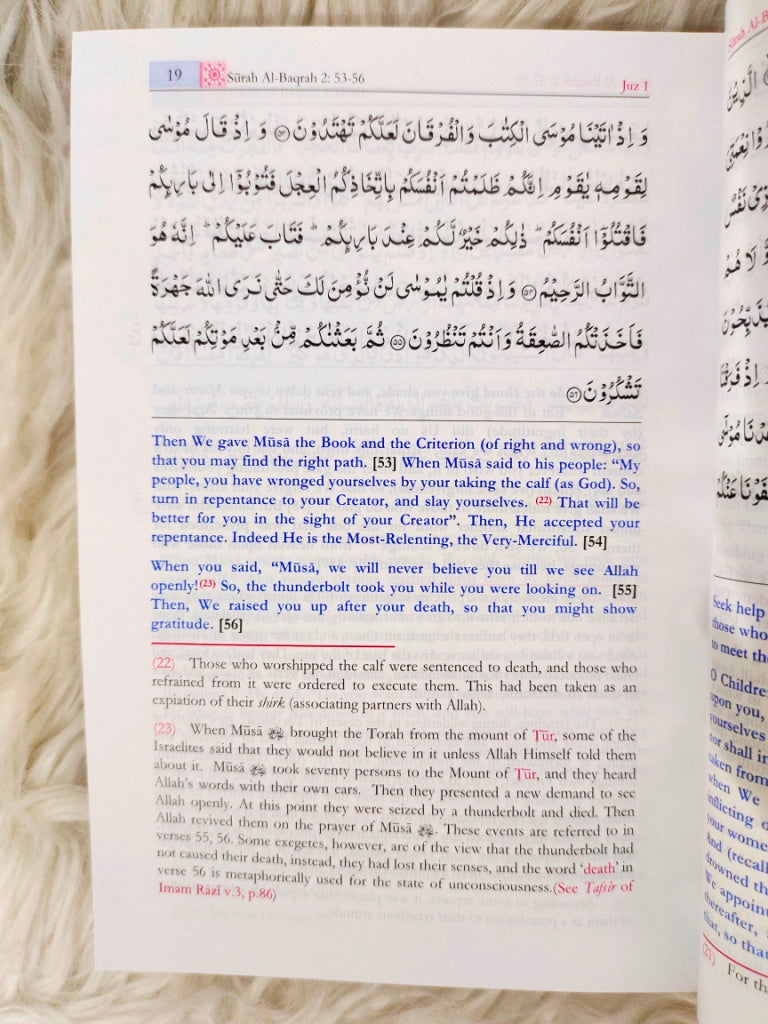 19 Sūrah Al-Baqrah 2: 53-56
Juz 1
وَ اِذْ اٰتَيْنَا مُوْسَى الْكِتٰبَ وَالْفُرْقَانَ لَعَلَّكُمْ تَهْتَدُوْنَ ﴿۵۳﴾ وَ اِذْ قَالَ مُوْسٰى
لِقَوْمِهٖ يٰقَوْمِ اِنَّكُمْ ظَلَمْتُمْ اَنْفُسَكُمْ بِاتِّخَاذِكُمُ الْعِجْلَ فَتُوْبُوْۤا اِلٰى بَارِىِٕكُمْ
فَاقْتُلُوْۤا اَنْفُسَكُمْ ؕ ذٰلِكُمْ خَيْرٌ لَّكُمْ عِنْدَ بَارِىِٕكُمْ ؕ فَتَابَ عَلَيْكُمْ ؕ اِنَّهٗ هُوَ
التَّوَّابُ الرَّحِيْمُ ﴿۵۴﴾ وَ اِذْ قُلْتُمْ يٰمُوْسٰى لَنْ نُّؤْمِنَ لَكَ حَتّٰى نَرَى اللهَ جَهْرَةً
فَاَخَذَتْكُمُ الصّٰعِقَةُ وَ اَنْتُمْ تَنْظُرُوْنَ ﴿۵۵﴾ ثُمَّ بَعَثْنٰكُمْ مِّنْۢ بَعْدِ مَوْتِكُمْ لَعَلَّكُمْ
تَشْكُرُوْنَ ﴿۵۶﴾
Then We gave Mūsā the Book and the Criterion (of right and wrong), so
that you may find the right path. [53] When Mūsā said to his people: “My
people, you have wronged yourselves by your taking the calf (as God). So,
turn in repentance to your Creator, and slay yourselves. (22) That will be
better for you in the sight of your Creator”. Then, He accepted your
repentance. Indeed He is the Most-Relenting, the Very-Merciful. [54]
When you said, “Mūsā, we will never believe you till we see Allah
openly!(23) So, the thunderbolt took you while you were looking on. [55]
Then, We raised you up after your death, so that you might show
gratitude. [56]
(22) Those who worshipped the calf were sentenced to death, and those who
refrained from it were ordered to execute them. This had been taken as an
expiation of their shirk (associating partners with Allah).
(23) When Mūsā brought the Torah from the mount of Ṭūr, some of the
Israelites said that they would not believe in it unless Allah Himself told them
about it. Mūsā took seventy persons to the Mount of Ṭūr, and they heard
Allah’s words with their own ears. Then they presented a new demand to see
Allah openly. At this point they were seized by a thunderbolt and died. Then
Allah revived them on the prayer of Mūsā . These events are referred to in
verses 55, 56. Some exegetes, however, are of the view that the thunderbolt had
not caused their death, instead, they had lost their senses, and the word ‘death’ in
verse 56 is metaphorically used for the state of unconsciousness.(See Tafsīr of
Imam Rāzī v.3, p.86)
Seek help
those who
to meet
O Childre
upon you,
yourselves
nor shall
taken from
when We
inflicting
your wome
And (recall
drowned
We appoint
thereafter,
that, so that
(21) For